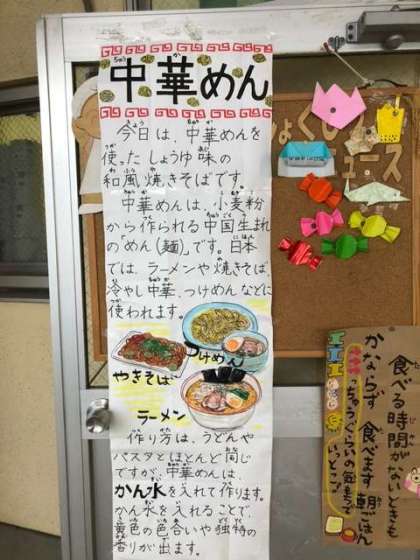 中華めん
今日は、中華めんを
使ったしょうゆ味の
和風焼きそばです。
中華めんは、小麦粉
から作られる中国生まれ
のめん(麺)です。日本
では、ラーメンや焼きそば、
冷やし中華、つけめんなどに
使われます。
つけめん
やきそば
ラーメン
作り方は、うどんや
パスタとほとんど同じ
ですが、中華めんは、
かん水を入れて作ります。
かん水を入れることで、
黄色の色合いや独特の
香りが出ます。
ュース
食べる時間がないときも
かならず食べます朝ごはん